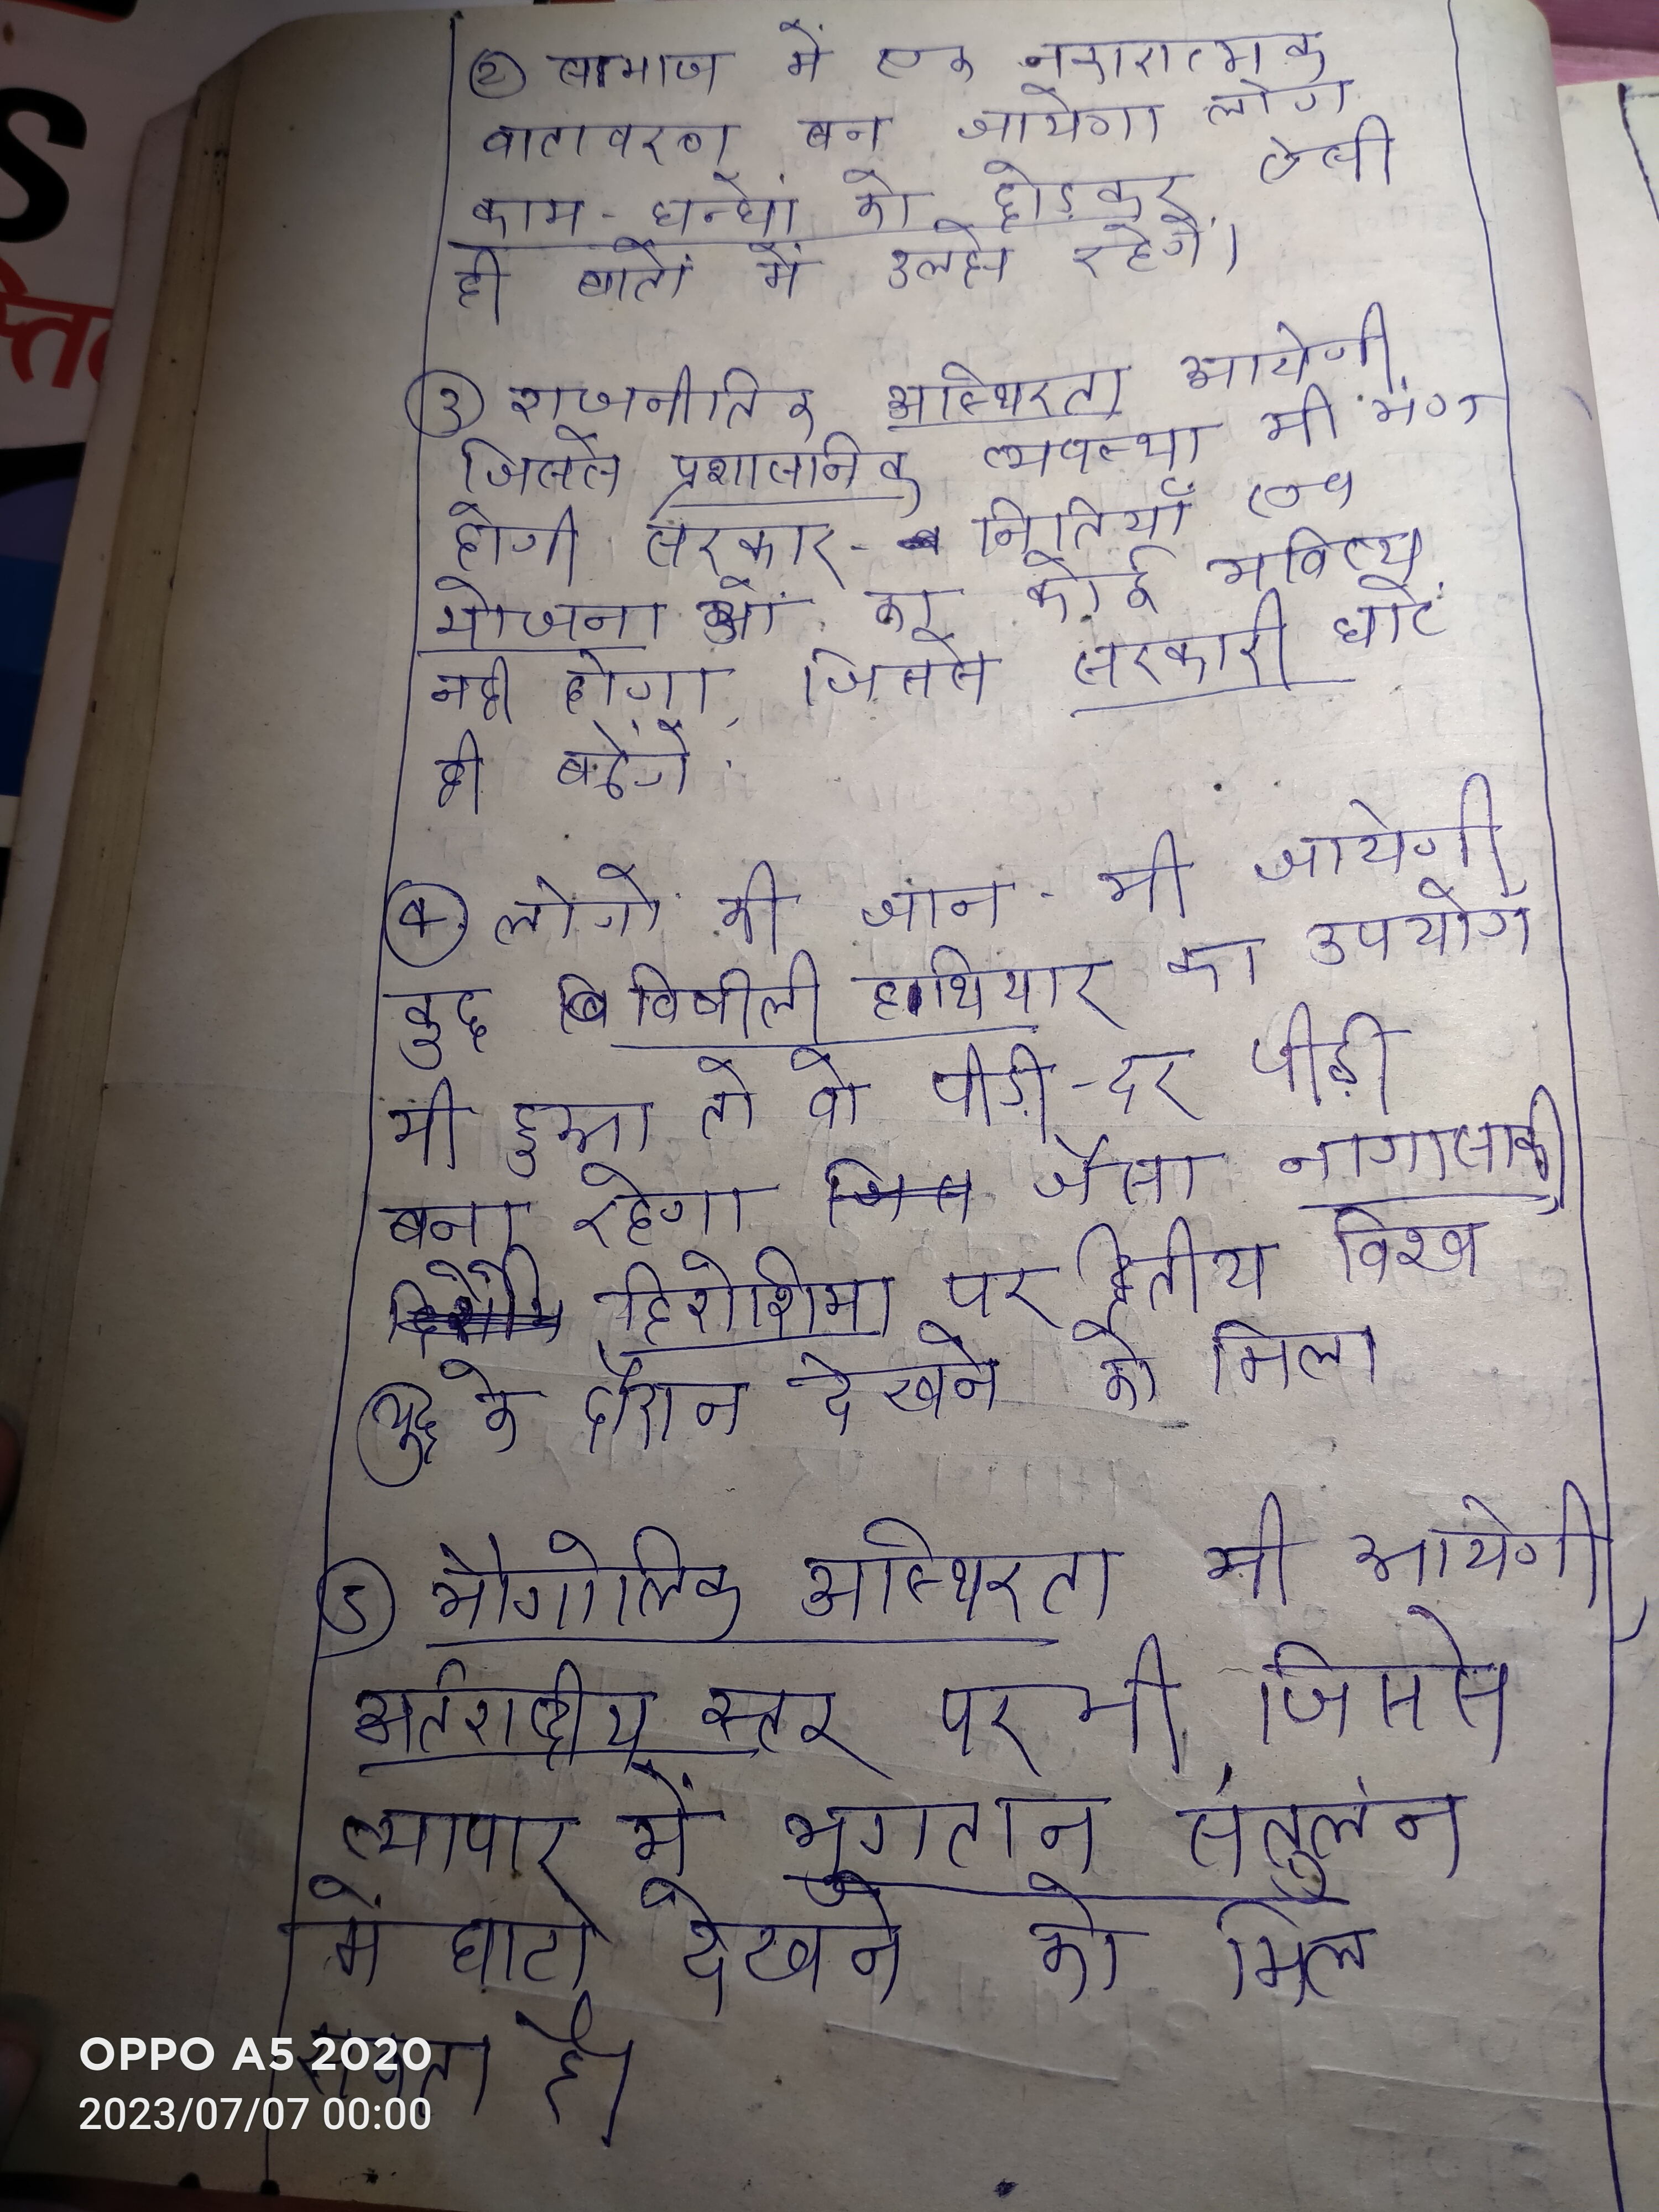 ② सामाज में एक नकारात्मक
वातावरण बन जायेगा लोग
काम-धन्धों को छोड़कर ऐसी
ही बातों में उलझे रहेगें।
③ राजनीतिक अस्थिरता आयेगी
जिससे प्रशासनिक व्यवस्था भी भंग
होगी सरकार- नितियाँ एवं
योजनाओं का कोई भविष्य
नही होगा, जिससे सरकारी घाटे
ही बढेंगे.
④ लोगों की जान - भी जायेगी
कुछ विषीली हाथियार का उपयोग
भी हुआ तो वो पीड़ी-दर पीढ़ी
बना रहेगा जैसा नागासाकी
हिरोशिमा पर द्वितीय विश्व
युद्ध के दौरान देखने को मिला
⑤ भौगोलिक अस्थिरता भी आयेगी,
अर्तराष्ट्रीय स्तर पर भी, जिससे
व्यापार में भुगतान संतुलन
में घाटा देखने को मिल
सकता है।
OPPO A5 2020
2023/07/07 00:00
S
स्ति